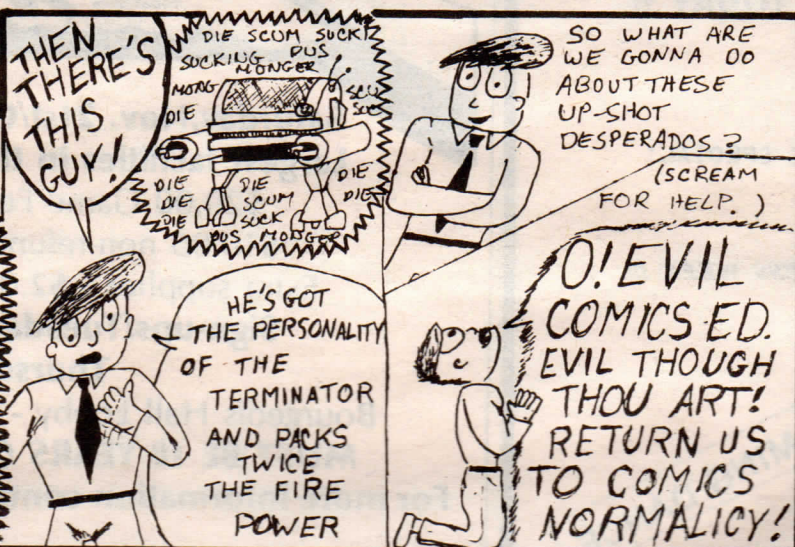 THEN
THERE'S
THIS
GUY!
DIE SCUM SUCK!
SUCKING PUS
MONGER
MONG
DIE
SCU
SUC
DIE
DIE
DIE
DIE
SCUM
SUCK
DIE
DIE
PUS MONGER
HE'S GOT
THE PERSONALITY
OF THE
TERMINATOR
AND PACKS
TWICE
THE FIRE
POWER
SO WHAT ARE
WE GONNA DO
ABOUT THESE
UP-SHOT
DESPERADOS?
(SCREAM
FOR HELP.)
O! EVIL
COMICS ED.
EVIL THOUGH
THOU ART!
RETURN US
TO COMICS
NORMALICY!